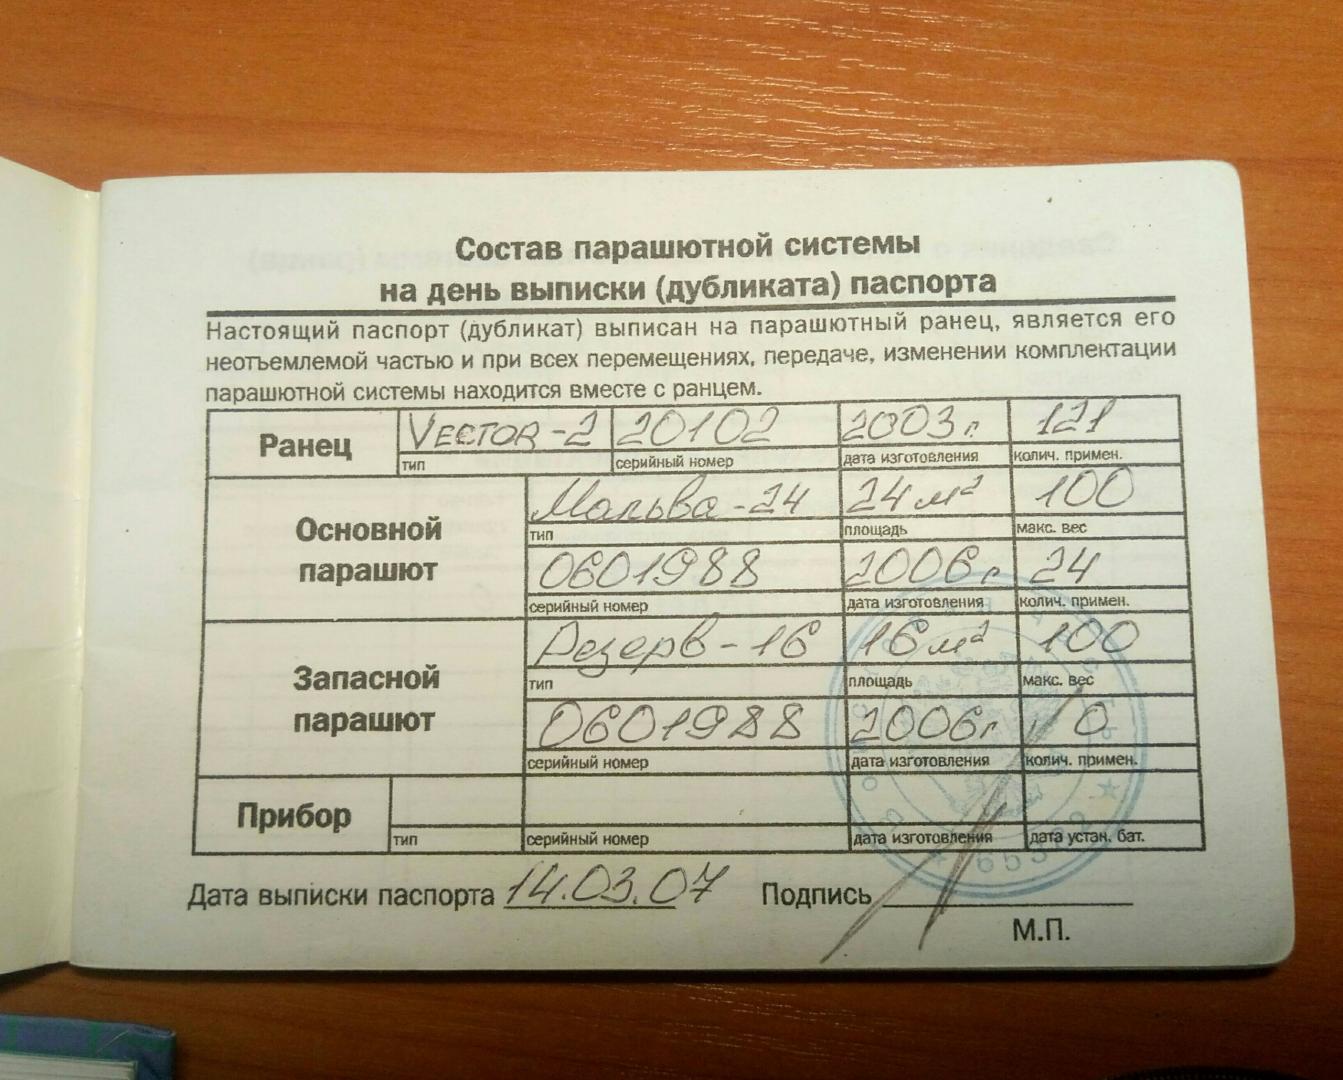 Состав парашютной системы
на день выписки (дубликата) паспорта
Настоящий паспорт (дубликат) выписан на парашютный ранец, является его
неотъемлемой частью и при всех перемещениях, передаче, изменении комплектации
парашютной системы находится вместе с ранцем.
Ранец VECTOR-2 20102 2003 г. 121
тип серийный номер дата изготовления колич. примен.
Основной парашют
Мальва-24 24 м² 100
тип площадь макс. вес
0601988 2006 г. 24
серийный номер дата изготовления колич. примен.
Запасной парашют
Резерв-16 16 м² 100
тип площадь макс. вес
0601988 2006г. 0
серийный номер дата изготовления колич. примен.
Прибор
тип серийный номер дата изготовления дата устан. бат.
Дата выписки паспорта 14.03.07 Подпись
М.П.